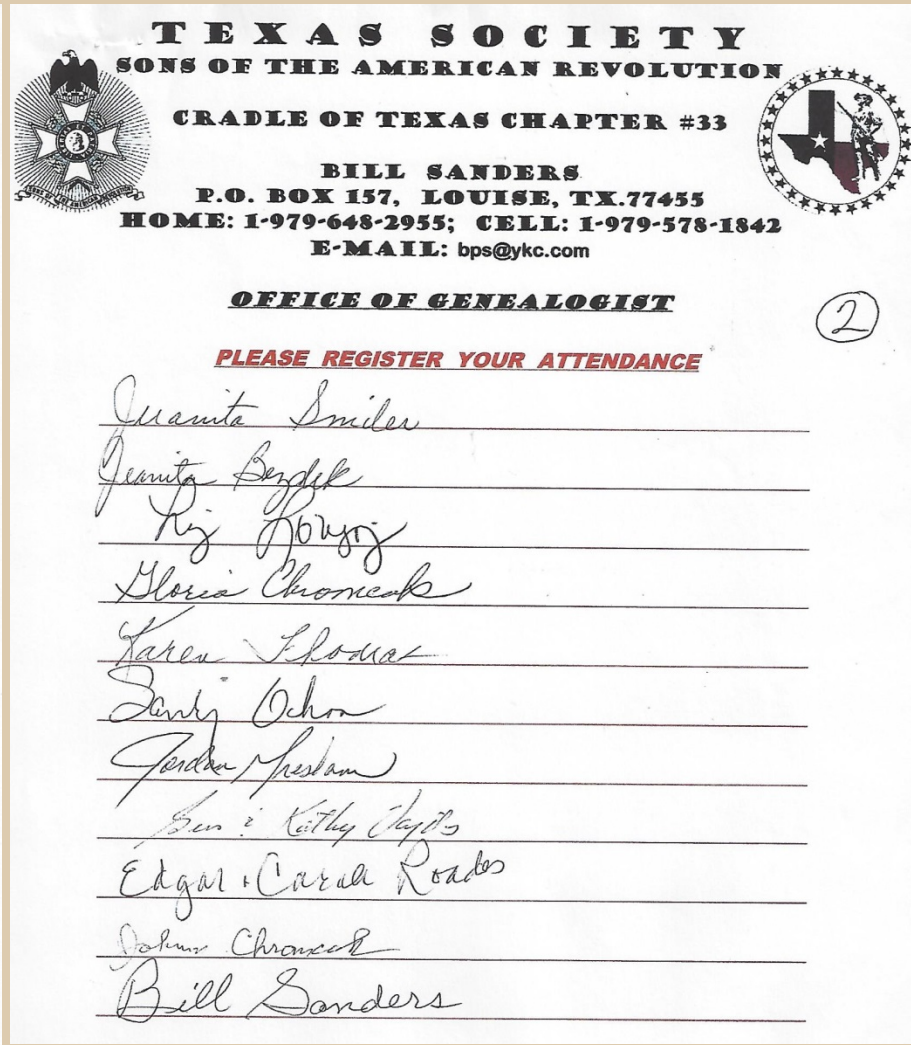 TEXAS SOCIETY
SONS OF THE AMERICAN REVOLUTION
CRADLE OF TEXAS CHAPTER #33
BILL SANDERS
P.O. BOX 157, LOUISE, TX.77455
HOME: 1-979-648-2955; CELL: 1-979-578-1842
E-MAIL: bps@ykc.com
OFFICE OF GENEALOGIST
2
PLEASE REGISTER YOUR ATTENDANCE
Juanita Smiler
Jeanita Bezdek
Liz
Gloria Chromcak
Karen Thomas
Sandy Ochoa
Jordan
& Kathy
Edgar & Carole Roades
Chromcak
Bill Sanders